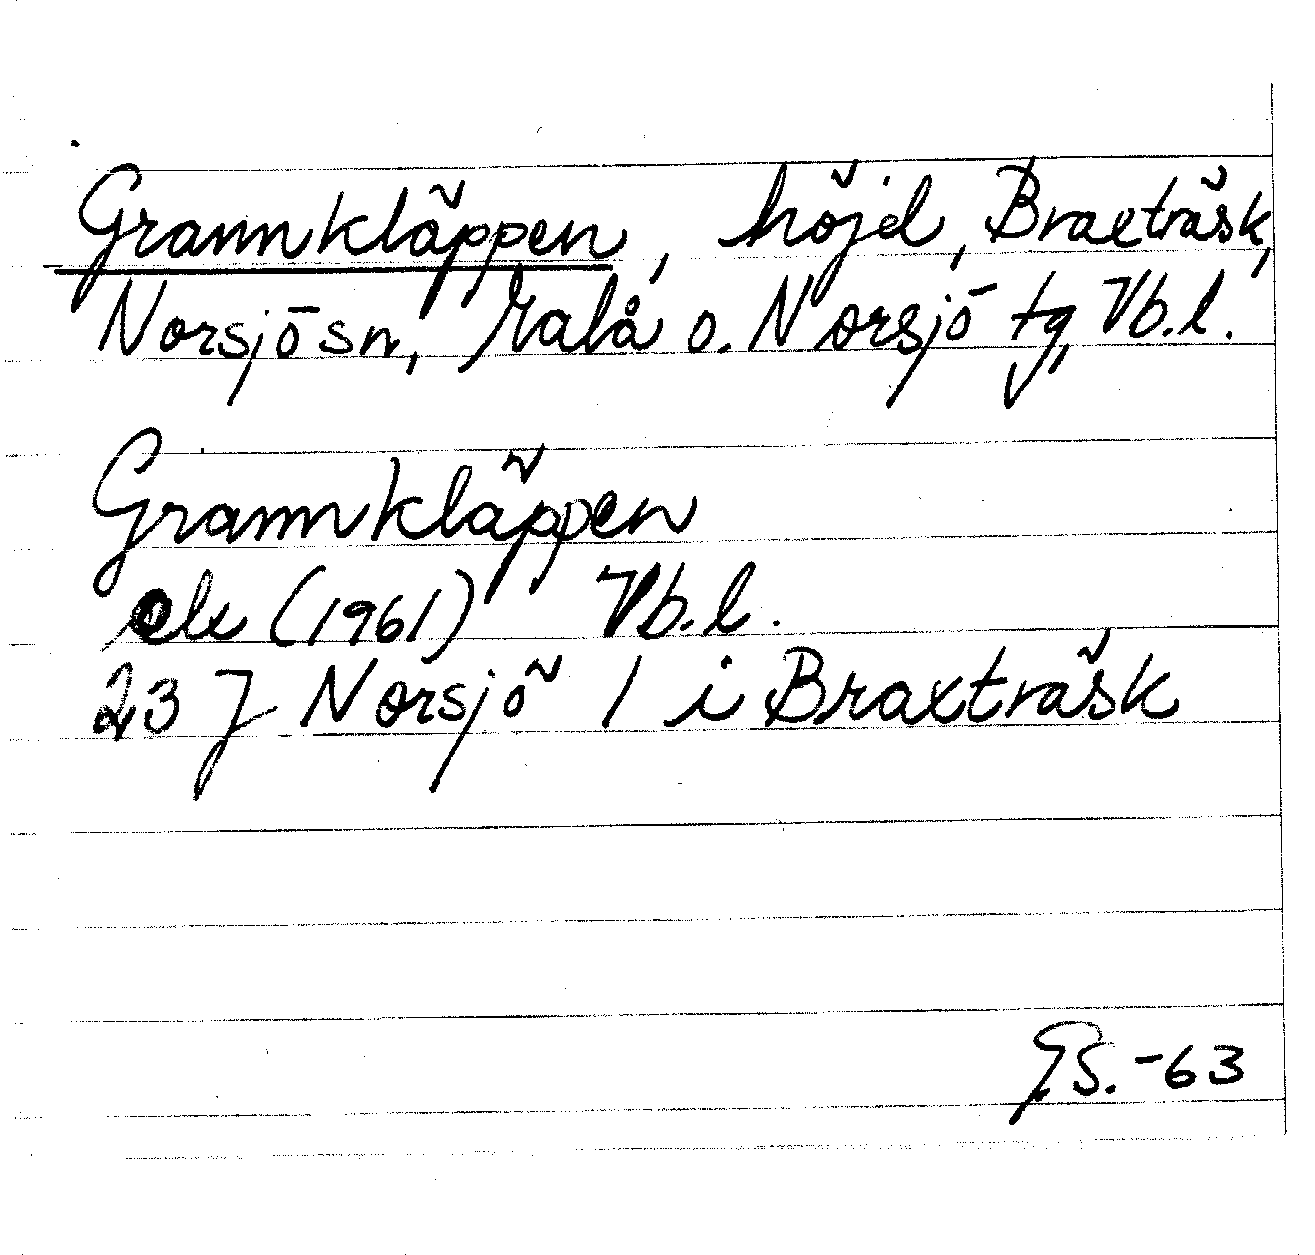 Grannkläppen, höjd, Braxträsk,
Norsjö sn, Malå o. Norsjö tg, Vb.l.
Grannkläppen
ek (1961) Vb.l.
23 J Norsjö 1 i Braxträsk
G.S. -63